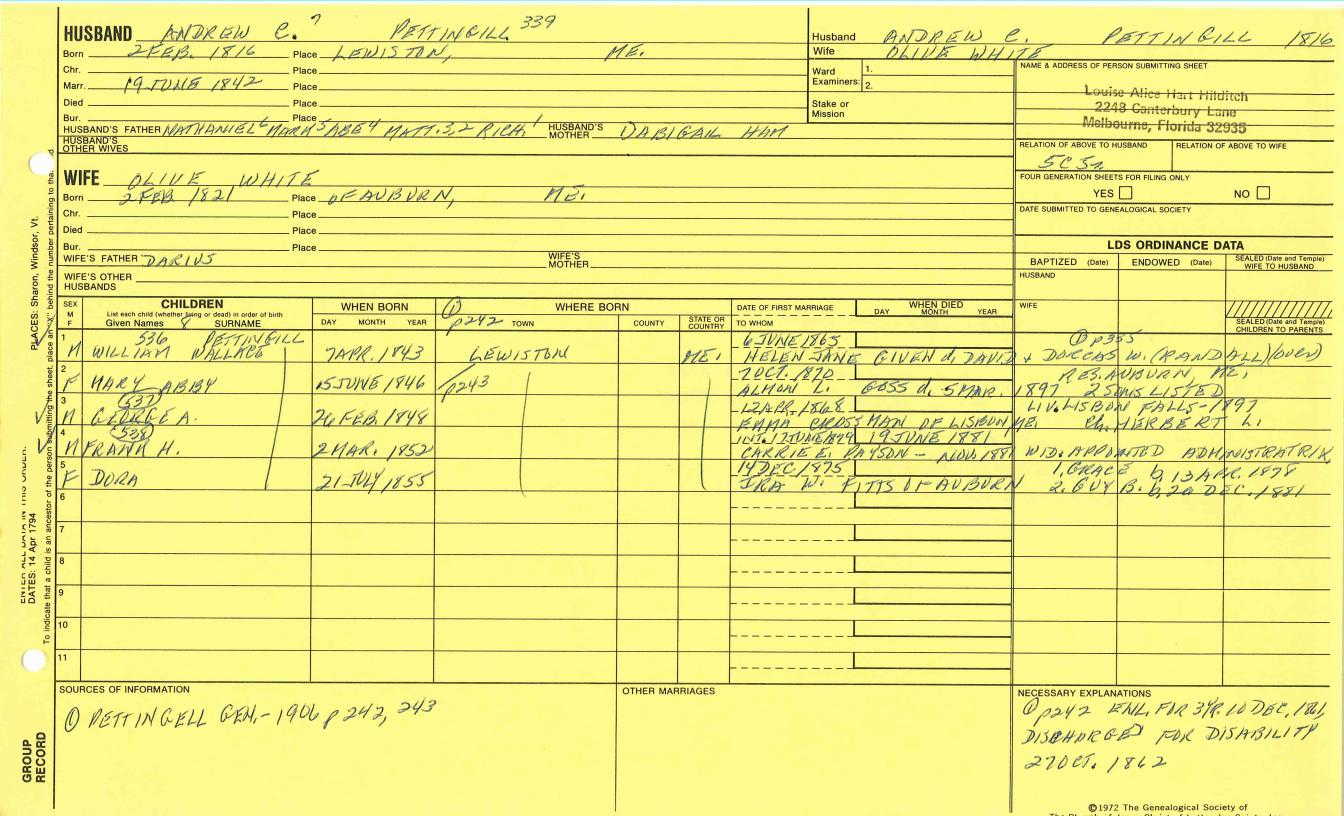 HUSBAND ANDREW C. 7 PETTINGILL 339
Born 2 FEB. 1816 Place LEWISTON, ME.
Chr. Place
Marr. 19 JUNE 1842 Place
Died Place
Bur. Place
HUSBAND'S FATHER NATHANIEL 6 MARK 5 ABE 4 MATT. 3,2 RICH. 1 HUSBAND'S MOTHER ABIGAIL HAM
HUSBAND'S OTHER WIVES
Husband ANDREW C. PETTINGILL 1816
Wife OLIVE WHITE
Ward Examiners: 1.
2.
Stake or Mission
NAME & ADDRESS OF PERSON SUBMITTING SHEET
Louise Alice Hart Hilditch
2248 Canterbury Lane
Melbourne, Florida 32935
RELATION OF ABOVE TO HUSBAND RELATION OF ABOVE TO WIFE
5C 5R
FOUR GENERATION SHEETS FOR FILING ONLY
YES NO
DATE SUBMITTED TO GENEALOGICAL SOCIETY
WIFE OLIVE WHITE
Born 2 FEB 1821 Place OF AUBURN, ME.
Chr. Place
Died Place
Bur. Place
WIFE'S FATHER DARIUS WIFE'S MOTHER
WIFE'S OTHER HUSBANDS
LDS ORDINANCE DATA
BAPTIZED (Date) ENDOWED (Date) SEALED (Date and Temple) WIFE TO HUSBAND
HUSBAND
WIFE
SEALED (Date and Temple) CHILDREN TO PARENTS
SEX M F
CHILDREN
List each child (whether living or dead) in order of birth
Given Names 8 SURNAME
WHEN BORN
DAY MONTH YEAR
① p242
WHERE BORN
TOWN COUNTY STATE OR COUNTRY
DATE OF FIRST MARRIAGE
TO WHOM
WHEN DIED
DAY MONTH YEAR
1 536 PETTINGILL 6 JUNE 1865 ① p355
M WILLIAM WALLACE 7 APR. 1843 LEWISTON ME. HELEN JANE GIVEN d. DAVID + DORCAS W. (RANDALL) (OVER)
2 7 OCT. 1870 RES. AUBURN, ME.
F MARY ABBY 15 JUNE 1846 p243 ALMON L. GOSS d. 5 MAR. 1897 2 SONS LISTED
3 537 12 APR. 1868 LIV. LISBON FALLS-1897
M GEORGE A. 26 FEB. 1848 EMMA CROSSMAN OF LISBON, ME. Ch. HERBERT L.
4 538 INT. 17 JUNE 1874 19 JUNE 1881
M FRANK H. 2 MAR. 1852 CARRIE E. PAYSON - 1881 WID. APPOINTED ADMINISTRATRIX
5 14 DEC 1875 1. GRACE b. 13 APR. 1878
F DORA 21 JULY 1855 IRA W. FITTS OF AUBURN 2. GUY B. b. 20 DEC. 1881
6
7
8
9
10
11
SOURCES OF INFORMATION
① PETTINGELL GEN.- 1906 p 242, 243
OTHER MARRIAGES
NECESSARY EXPLANATIONS
① p242 ENL. FOR 3 YR. 10 DEC, 1861,
DISCHARGED FOR DISABILITY
27 OCT. 1862
©1972 The Genealogical Society of
PLACES: Sharon, Windsor, Vt.
ENTER ALL DATA IN THIS ORDER:
DATES: 14 Apr 1794
To indicate that a child is an ancestor of the person submitting the sheet, place an "X" behind the number pertaining to that
GROUP RECORD